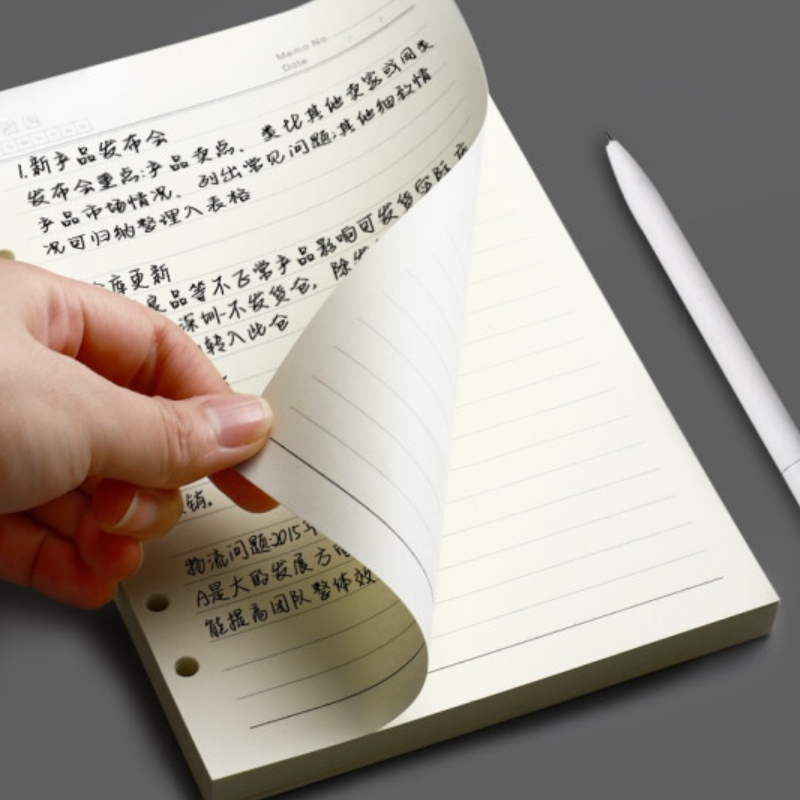 Memo No.
Date / /
1.新产品发布会
发布会重点:产品卖点、类比其他卖家或同类
产品市场情况、列出常见问题,其他细致情
况可归纳整理入表格
库更新
良品等不正常产品影响可发货
深圳-不发货仓,除
转入此仓
销.
物流问题2015年
A是大的发展方
能提高团队整体效